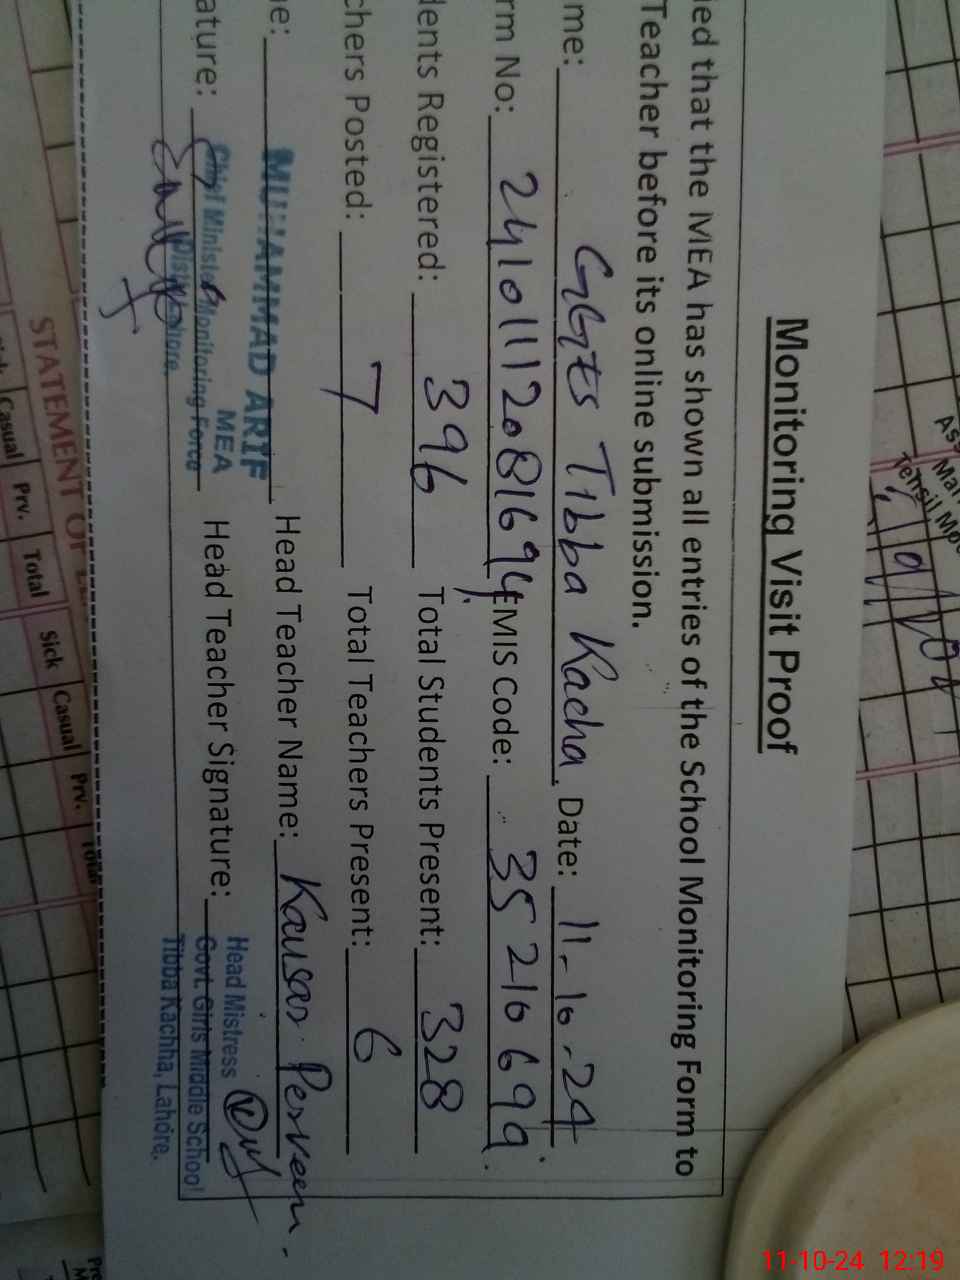 Monitoring Visit Proof
ied that the MEA has shown all entries of the School Monitoring Form to
Teacher before its online submission.
me: GGES Tibba Kacha. Date: 11-10-24
rm No: 24101112081694 EMIS Code: 35210699.
dents Registered: 396 Total Students Present: 328
chers Posted: 7 Total Teachers Present: 6
e: MUHAMMAD ARIF Head Teacher Name: Kausar Perveen.
MEA
ature: Chief Minister Monitoring Force Head Teacher Signature:
Distt. Lahore.
Head Mistress
Govt. Girls Middle School
Tibba Kachha, Lahore.
STATEMENT OF
Casual Prv. Total Sick Casual Prv. Total
Tehsil Mo
11-10-24 12:19